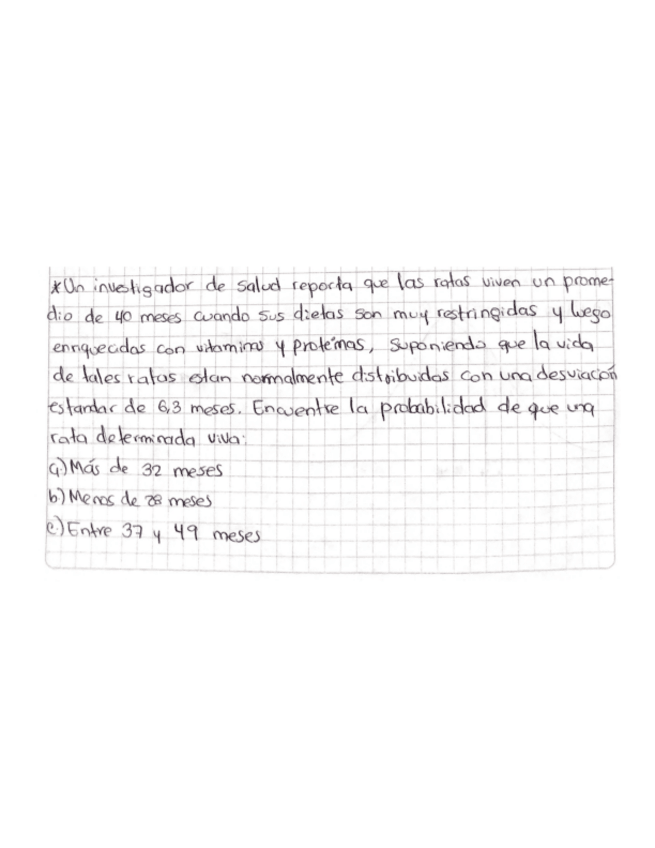 *Un investigador de salud reporta que las ratas viven un prome-
dio de 40 meses cuando sus dietas son muy restringidas y luego
enriquecidas con vitamino y proteínas, suponiendo que la vida
de tales ratas estan normalmente distribuidas con una desviación
estandar de 6,3 meses. Encuentre la probabilidad de que una
rata determinada viva:
a) Más de 32 meses
b) Menos de 28 meses
c) Entre 37 y 49 meses